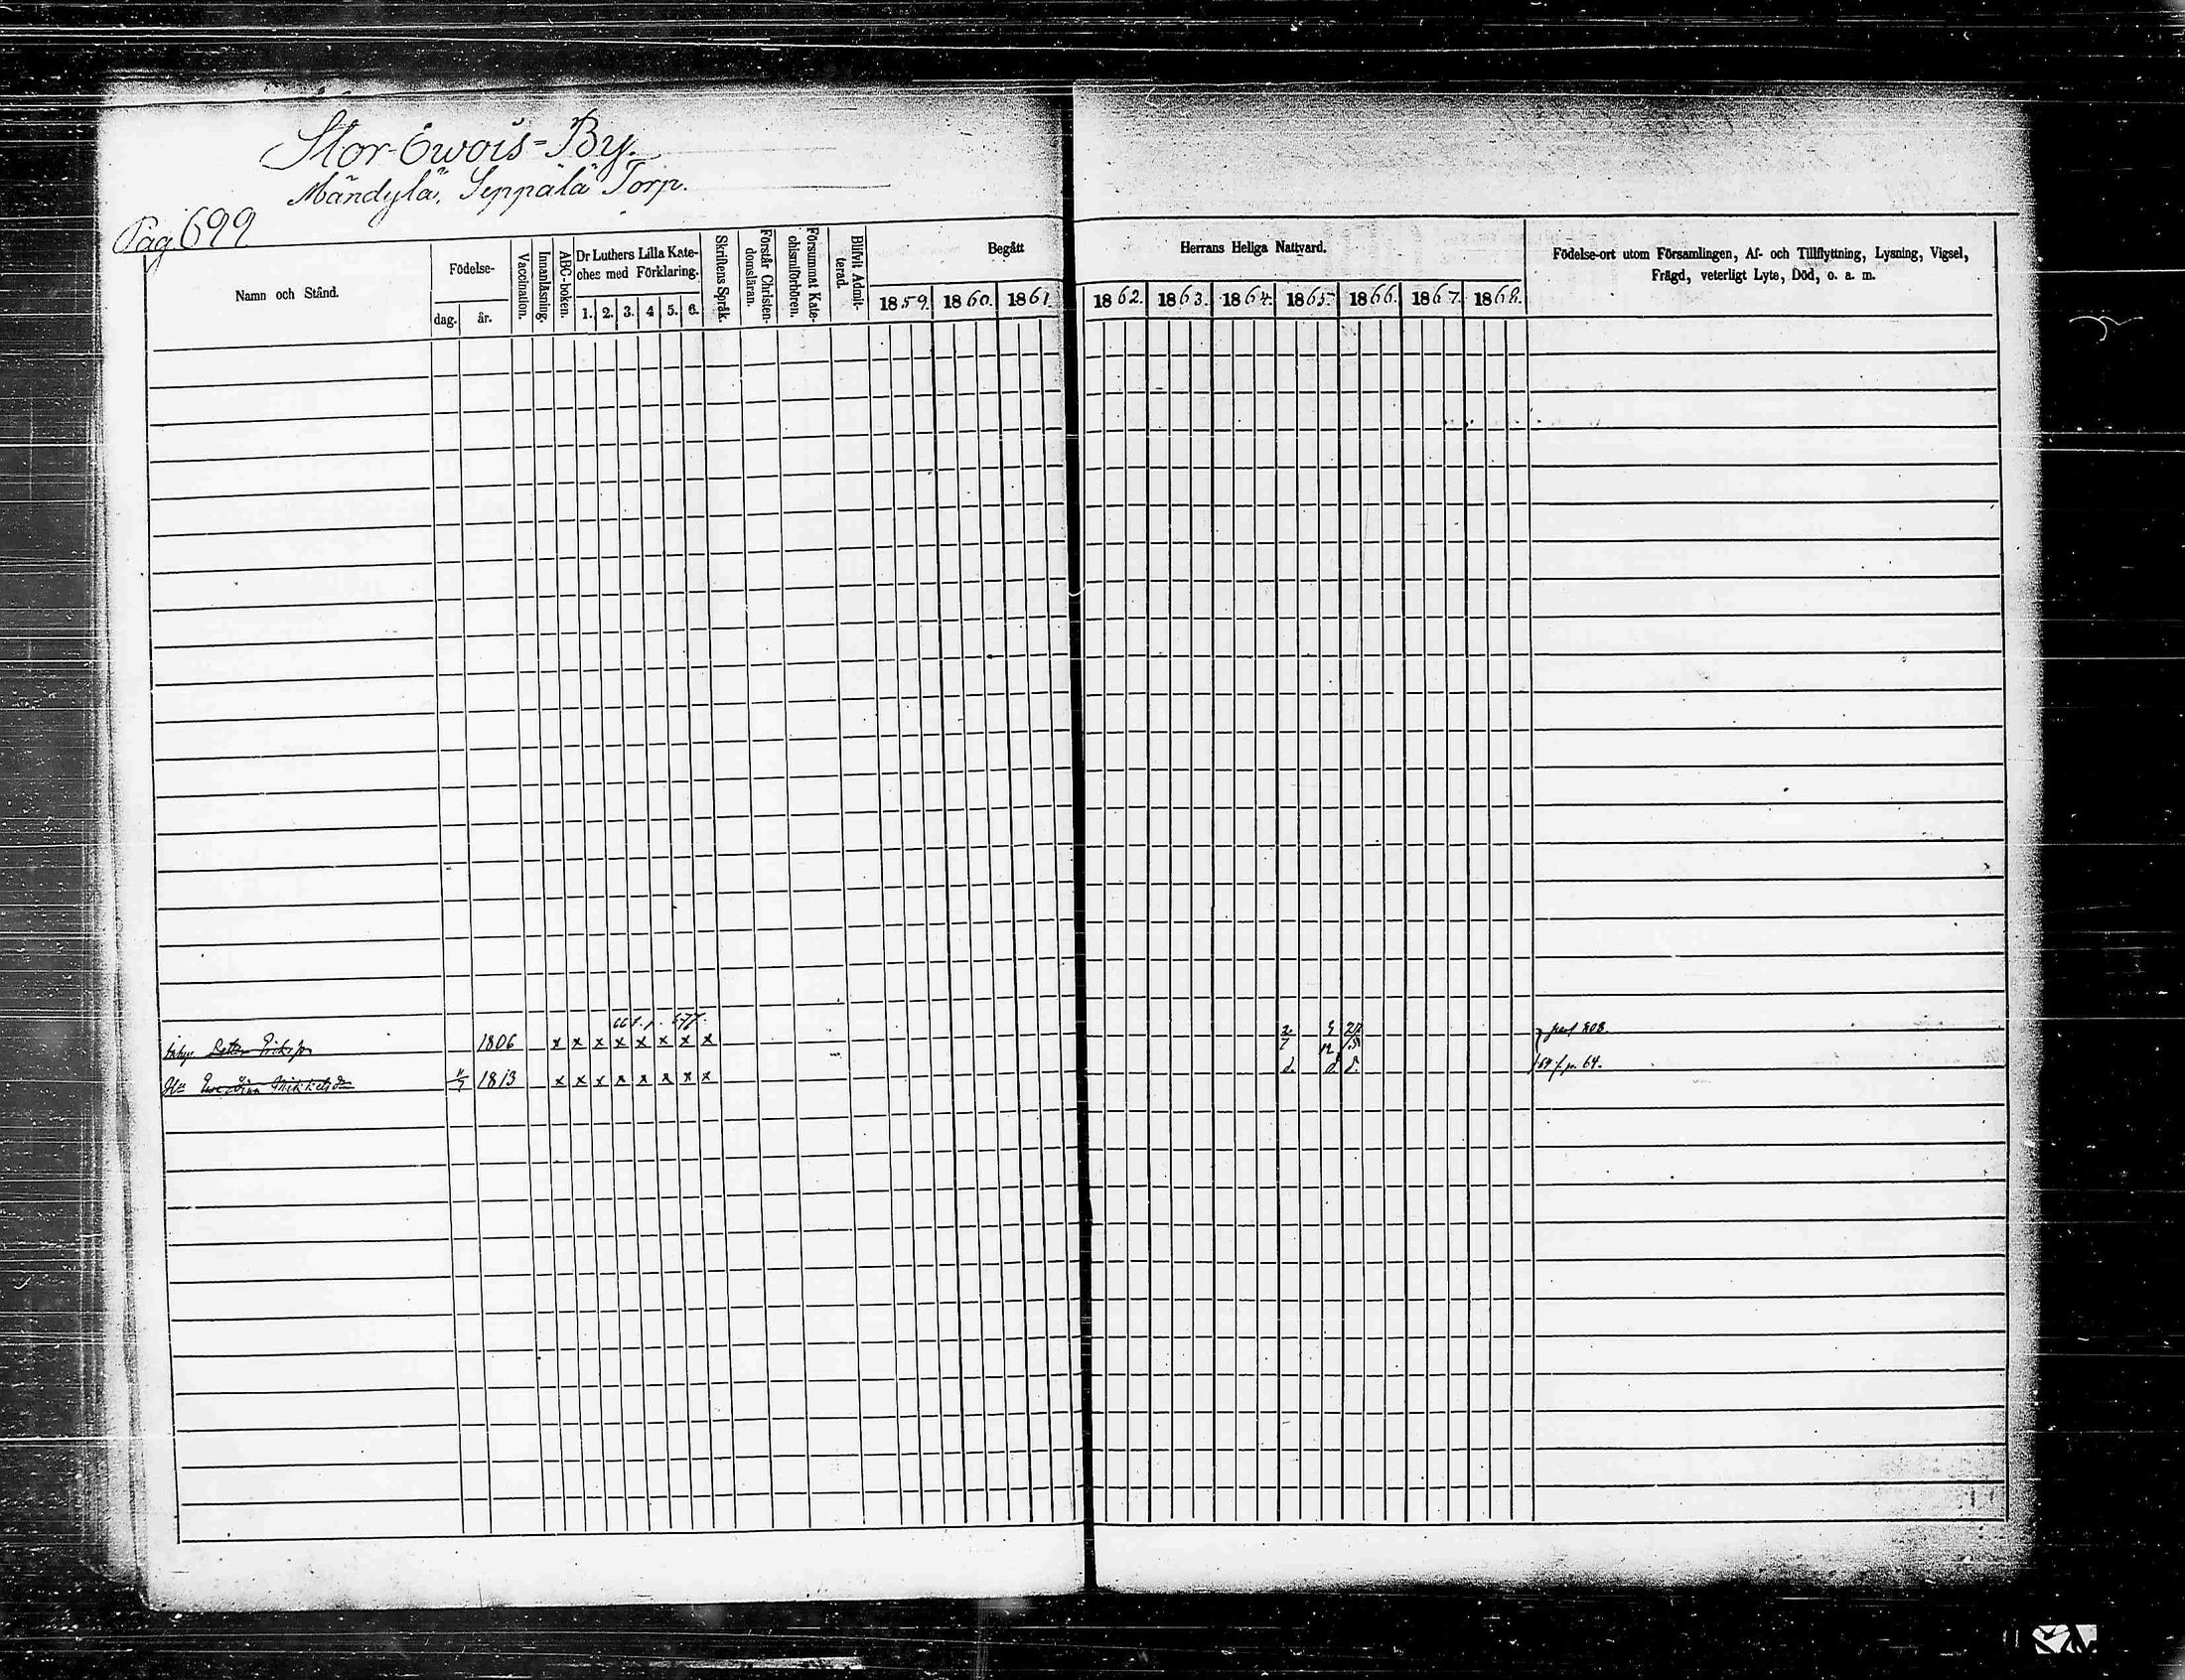 Stor-Ewois-By.
Mändylä, Seppälä Torp.
Pag 699
Namn och Stånd.
Födelse-
dag. år.
Vaccination.
Innanläsning.
ABC-boken.
Dr Luthers Lilla Kate-
ches med Förklaring.
1. 2. 3. 4 5. 6.
Skriftens Språk.
Förstår Christen-
domsläran.
Försummat Kate-
chismiförhören.
Blifvit Admit-
terad.
Begått Herrans Heliga Nattvard.
1859. 1860. 1861. 1862. 1863. 1864. 1865. 1866. 1867. 1868.
Födelse-ort utom Församlingen, Af- och Tillflyttning, Lysning, Vigsel,
Frägd, veterligt Lyte, Död, o. a. m.
Inhys Eriksson 1806 x x x x x x x x
1813 x x x x x x x x